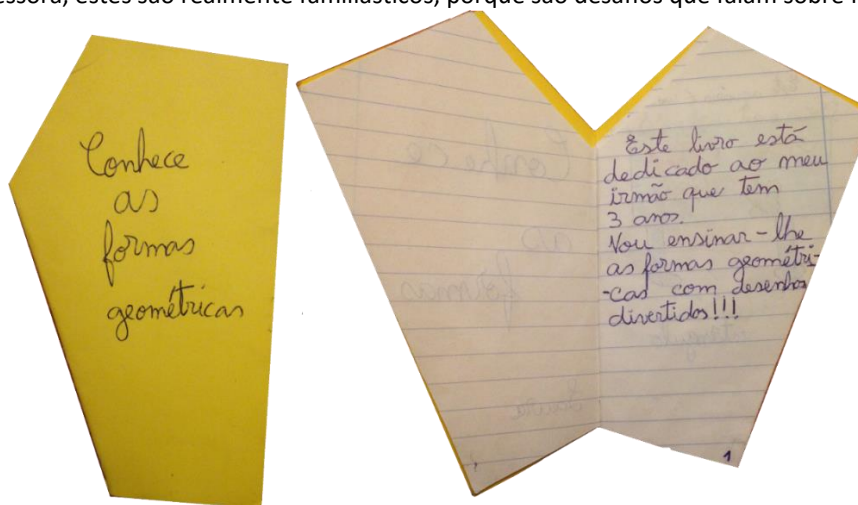 estes são realmente familiásticos, porque são desafios que falam sobre
Conhece
as
formas
geométricas
Este livro está
dedicado ao meu
irmão que tem
3 anos.
Vou ensinar-lhe
as formas geométri-
-cas com desenhos
divertidos!!!
1